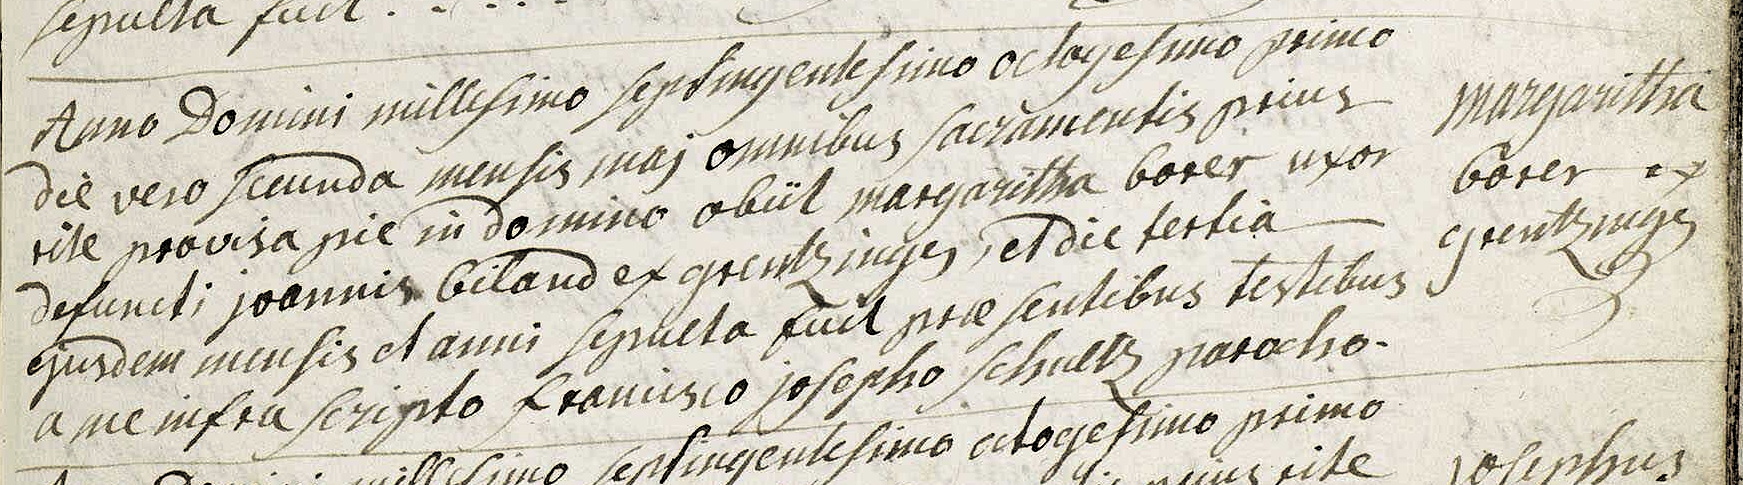 sepulta fuit . - . . .
Anno Domini millesimo septingentesimo octogesimo primo
die vero secunda mensis maj omnibus sacramentis prius
rite provisa pie in domino obiit margaritha borer uxor
defuncti joannis biland ex grentzinges, et die tertia
ejusdem mensis et anni sepulta fuit præsentibus testibus
a me infra scripto francisco josepho schultz parocho.
margaritha
borer ex
grentzinges
Anno Domini millesimo septingentesimo octogesimo primo
prius rite
josephus